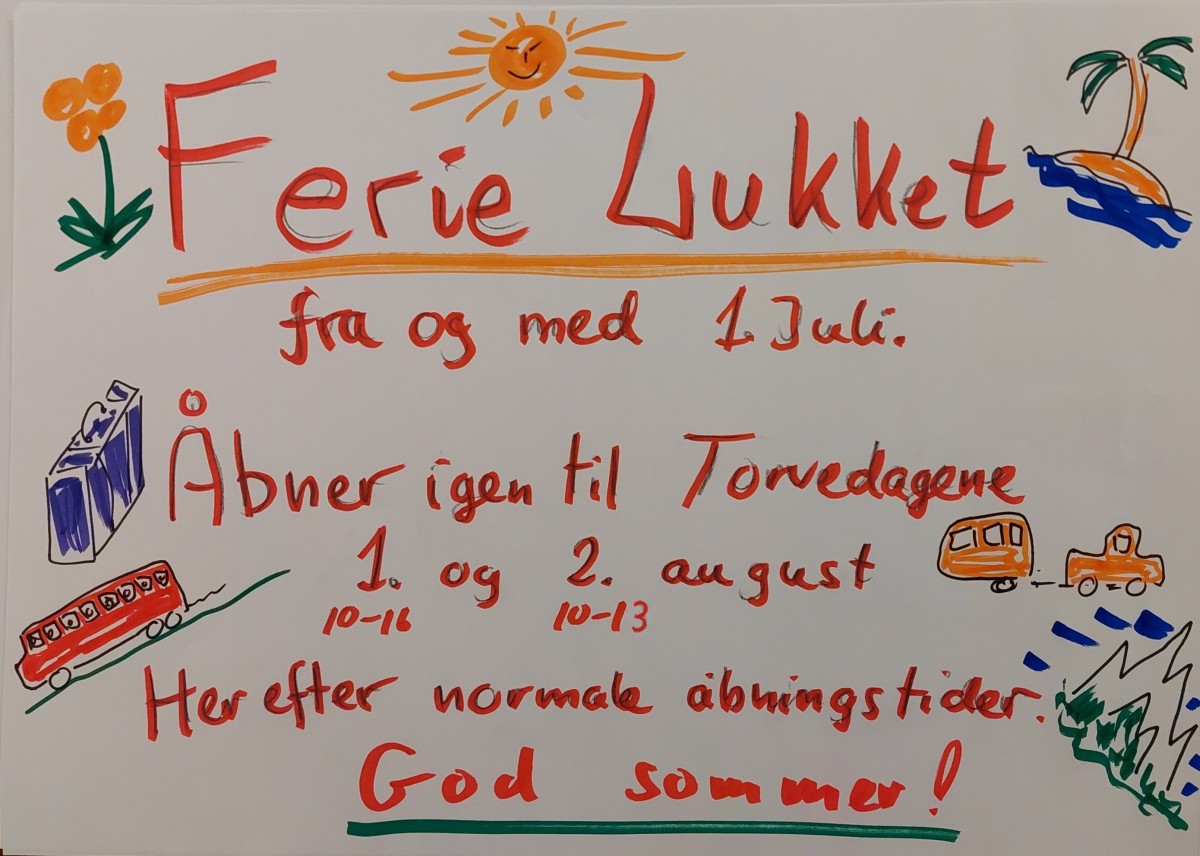 Ferie Lukket
fra og med 1. Juli.
Åbner igen til Torvedagene
1. og 2. august
10-16 10-13
Her efter normale åbningstider.
God sommer!